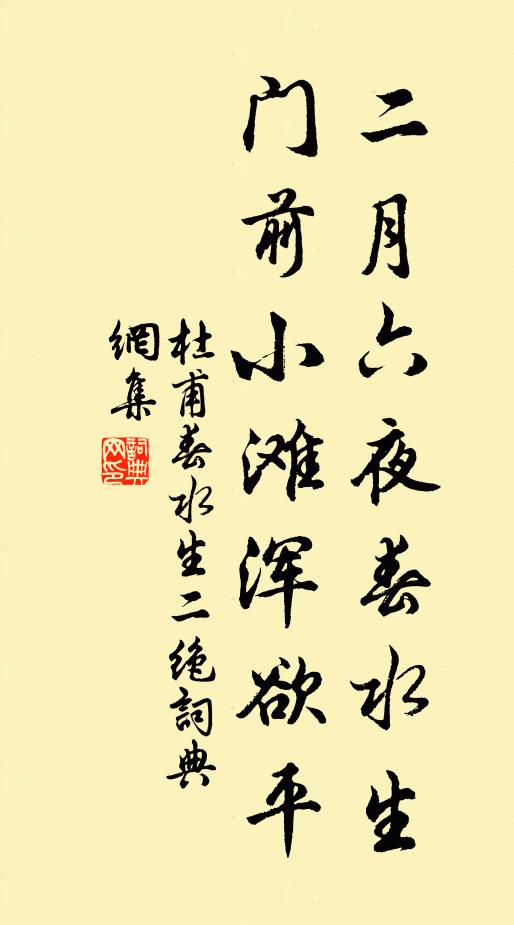 二月六夜春水生
门前小滩浑欲平
杜甫春水生二绝詞典
網集
詞典
网印